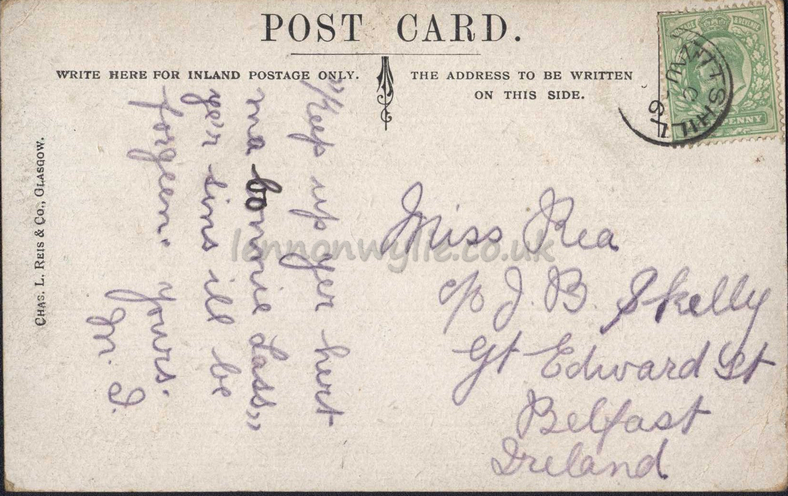 POST CARD.
WRITE HERE FOR INLAND POSTAGE ONLY.
THE ADDRESS TO BE WRITTEN
ON THIS SIDE.
CHAS. L. REIS & CO., GLASGOW.
"Keep up yer hert
ma bonnie Lass"
ye'r sins ill be
forgeen. yours.
M. J.
Miss Rea
c/o J. B. Skelly
Gt Edward St
Belfast
Ireland
PENNY
lennonwylie.co.uk